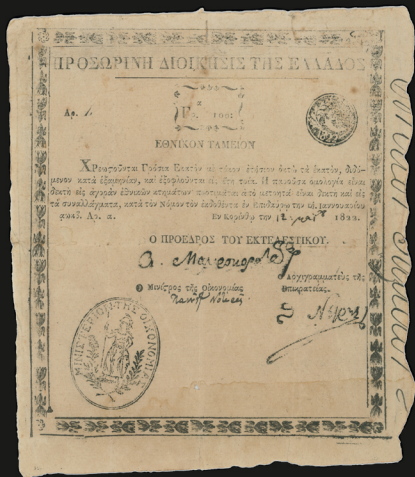 ΠΡΟΣΩΡΙΝΗ ΔΙΟΙΚΗΣΙΣ ΤΗΣ ΕΛΛΑΔΟΣ
Αρ. 1.
ΓΡ: 100:
ΕΘΝΙΚΟΝ ΤΑΜΕΙΟΝ
Χρεωστοῦνται Γρόσια Εκατὸν μὲ τόκον ἐτήσιον ὀκτὼ τὰ ἑκατὸν, διδό-
μενον κατὰ ἑξαμηνίαν, καὶ ἐξοφλοῦνται εἰς ἔτη Η παροῦσα ὁμολογία εἶναι
δεκτὴ εἰς ἀγορὰν ἐθνικῶν κτημάτων προτιμᾶται ἀπὸ μετρητά· εἶναι δεκτὴ καὶ εἰς
τὰ συναλλάγματα, κατὰ τὸν Νόμον τὸν ἐκδοθέντα ἐν Επιδαύρῳ τὴν ιζ. ἰαννουαρίου
αωκβ. Αρ. α. Εν Κορίνθῳ τὴν 12 1822.
Ο ΠΡΟΕΔΡΟΣ ΤΟΥ ΕΚΤΕΛΕΣΤΙΚΟΥ.
Α. Μαυροκορδ
Ο Αρχιγραμματεὺς τῆς
Ο Μινίστρος τῆς Οἰκονομίας Επικρατείας.
Πανοῦτ Νοταρᾶς
Θ Νέγρης
ΜΙΝΙΣΤΕΡΙΟΝ ΤΗΣ ΟΙΚΟΝΟΜΙΑΣ